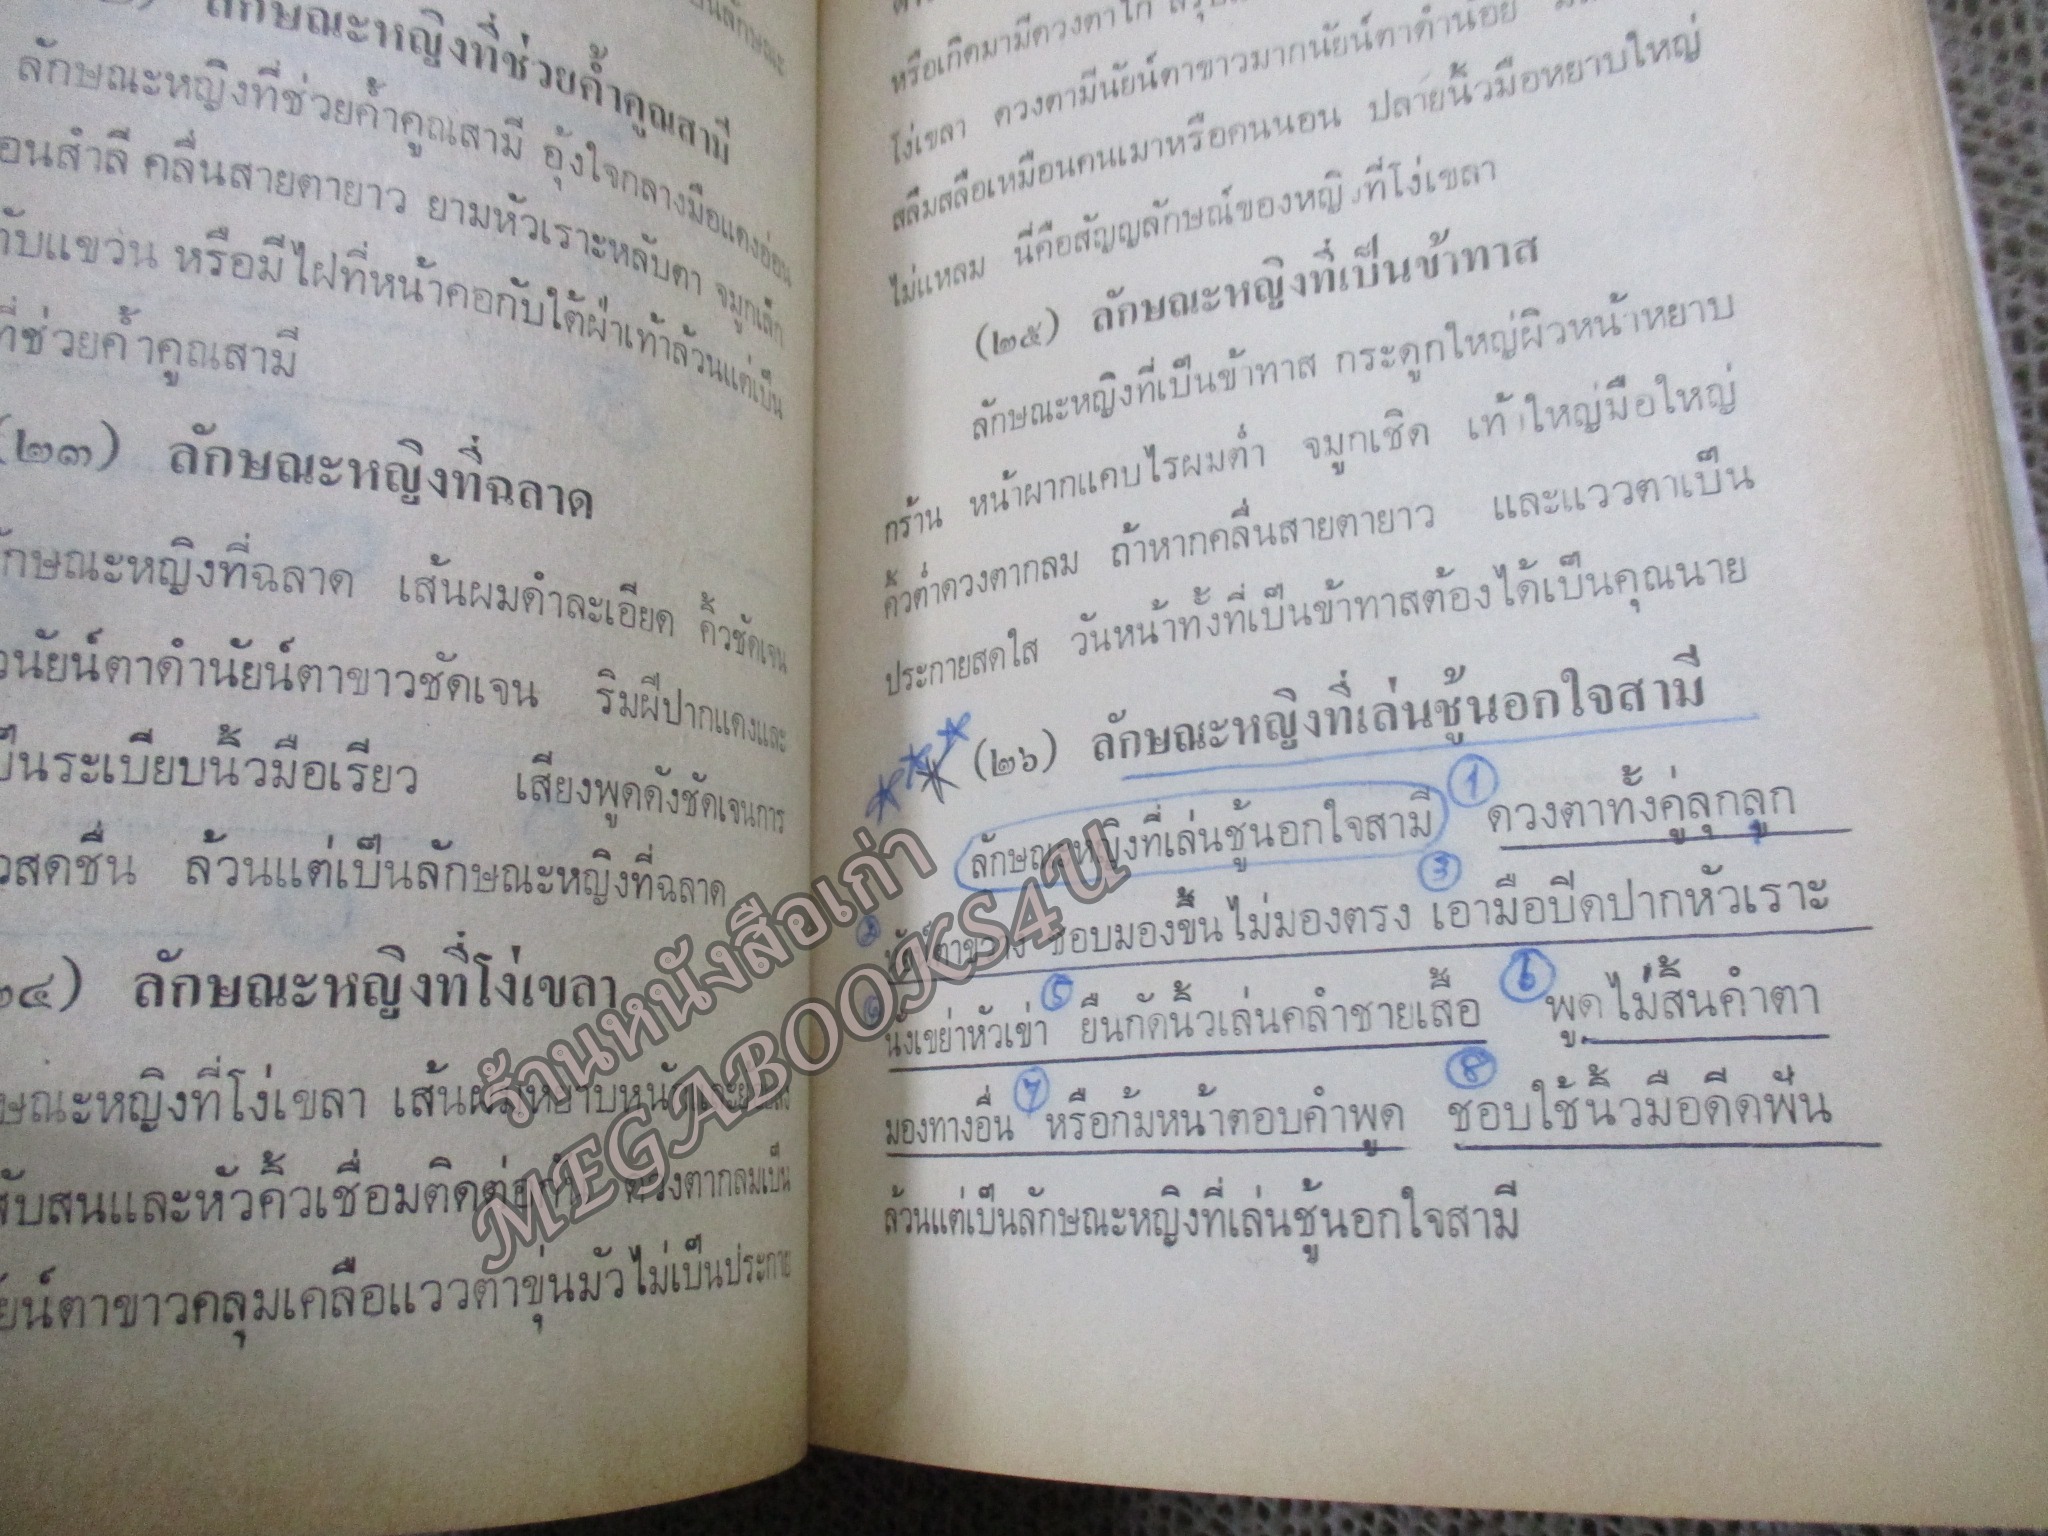 ลักษณะหญิงที่ช่วยค้ำคูณสามี
ลักษณะหญิงที่ช่วยค้ำคูณสามี อุ้งใจกลางมือแดงอ่อน
อนสำลี คลื่นสายตายาว ยามหัวเราะหลับตา จมูกเล็ก
กับแขวน หรือมีไฝที่หน้าคอกับใต้ฝ่าเท้าล้วนแต่เป็น
ที่ช่วยค้ำคูณสามี
(๒๓) ลักษณะหญิงที่ฉลาด
ลักษณะหญิงที่ฉลาด เส้นผมดำละเอียด คิ้วชัดเจน
นัยน์ตาดำนัยน์ตาขาวชัดเจน ริมผีปากแดงและ
เป็นระเบียบนิ้วมือเรียว เสียงพูดดังชัดเจนการ
สดชื่น ล้วนแต่เป็นลักษณะหญิงที่ฉลาด
๒๔) ลักษณะหญิงที่โง่เขลา
ษณะหญิงที่โง่เขลา เส้นผมหยาบหนา
สับสนและหัวคิ้วเชื่อมติดต่อกัน ดวงตากลมเป็น
ยน์ตาขาวคลุมเคลือแววตาขุ่นมัวไม่เป็นประกาย
หรือเกิดมามีดวงตาโก่
โง่เขลา ดวงตามีนัยน์ตาขาวมากนัยน์ตาดำน้อย
สลืมสลือเหมือนคนเมาหรือคนนอน ปลายนิ้วมือหยาบใหญ่
ไม่แหลม นี่คือสัญญลักษณ์ของหญิงที่โง่เขลา
(๒๕) ลักษณะหญิงที่เป็นข้าทาส
ลักษณะหญิงที่เป็นข้าทาส กระดูกใหญ่ผิวหน้าหยาบ
กร้าน หน้าผากแคบไรผมต่ำ จมูกเชิด เท้าใหญ่มือใหญ่
คิ้วต่ำดวงตากลม ถ้าหากคลื่นสายตายาว และแววตาเป็น
ประกายสดใส วันหน้าทั้งที่เป็นข้าทาสต้องได้เป็นคุณนาย
(๒๖) ลักษณะหญิงที่เล่นชู้นอกใจสามี
ลักษณะหญิงที่เล่นชู้นอกใจสามี 1 ดวงตาทั้งคู่ลุกลูก
2 หัวตาขวาง ชอบมองขึ้นไม่มองตรง 3 เอามือปีดปากหัวเราะ
4 นั่งเขย่าหัวเข่า 5 ยืนกัดนิ้วเล่นคลำชายเสื้อ 6 พูดไม่สิ้นคำตา
มองทางอื่น 7 หรือก้มหน้าตอบคำพูด 8 ชอบใช้นิ้วมือดีดฟัน
ล้วนแต่เป็นลักษณะหญิงที่เล่นชู้นอกใจสามี
ร้านหนังสือเก่า
MEGABOOKS4U